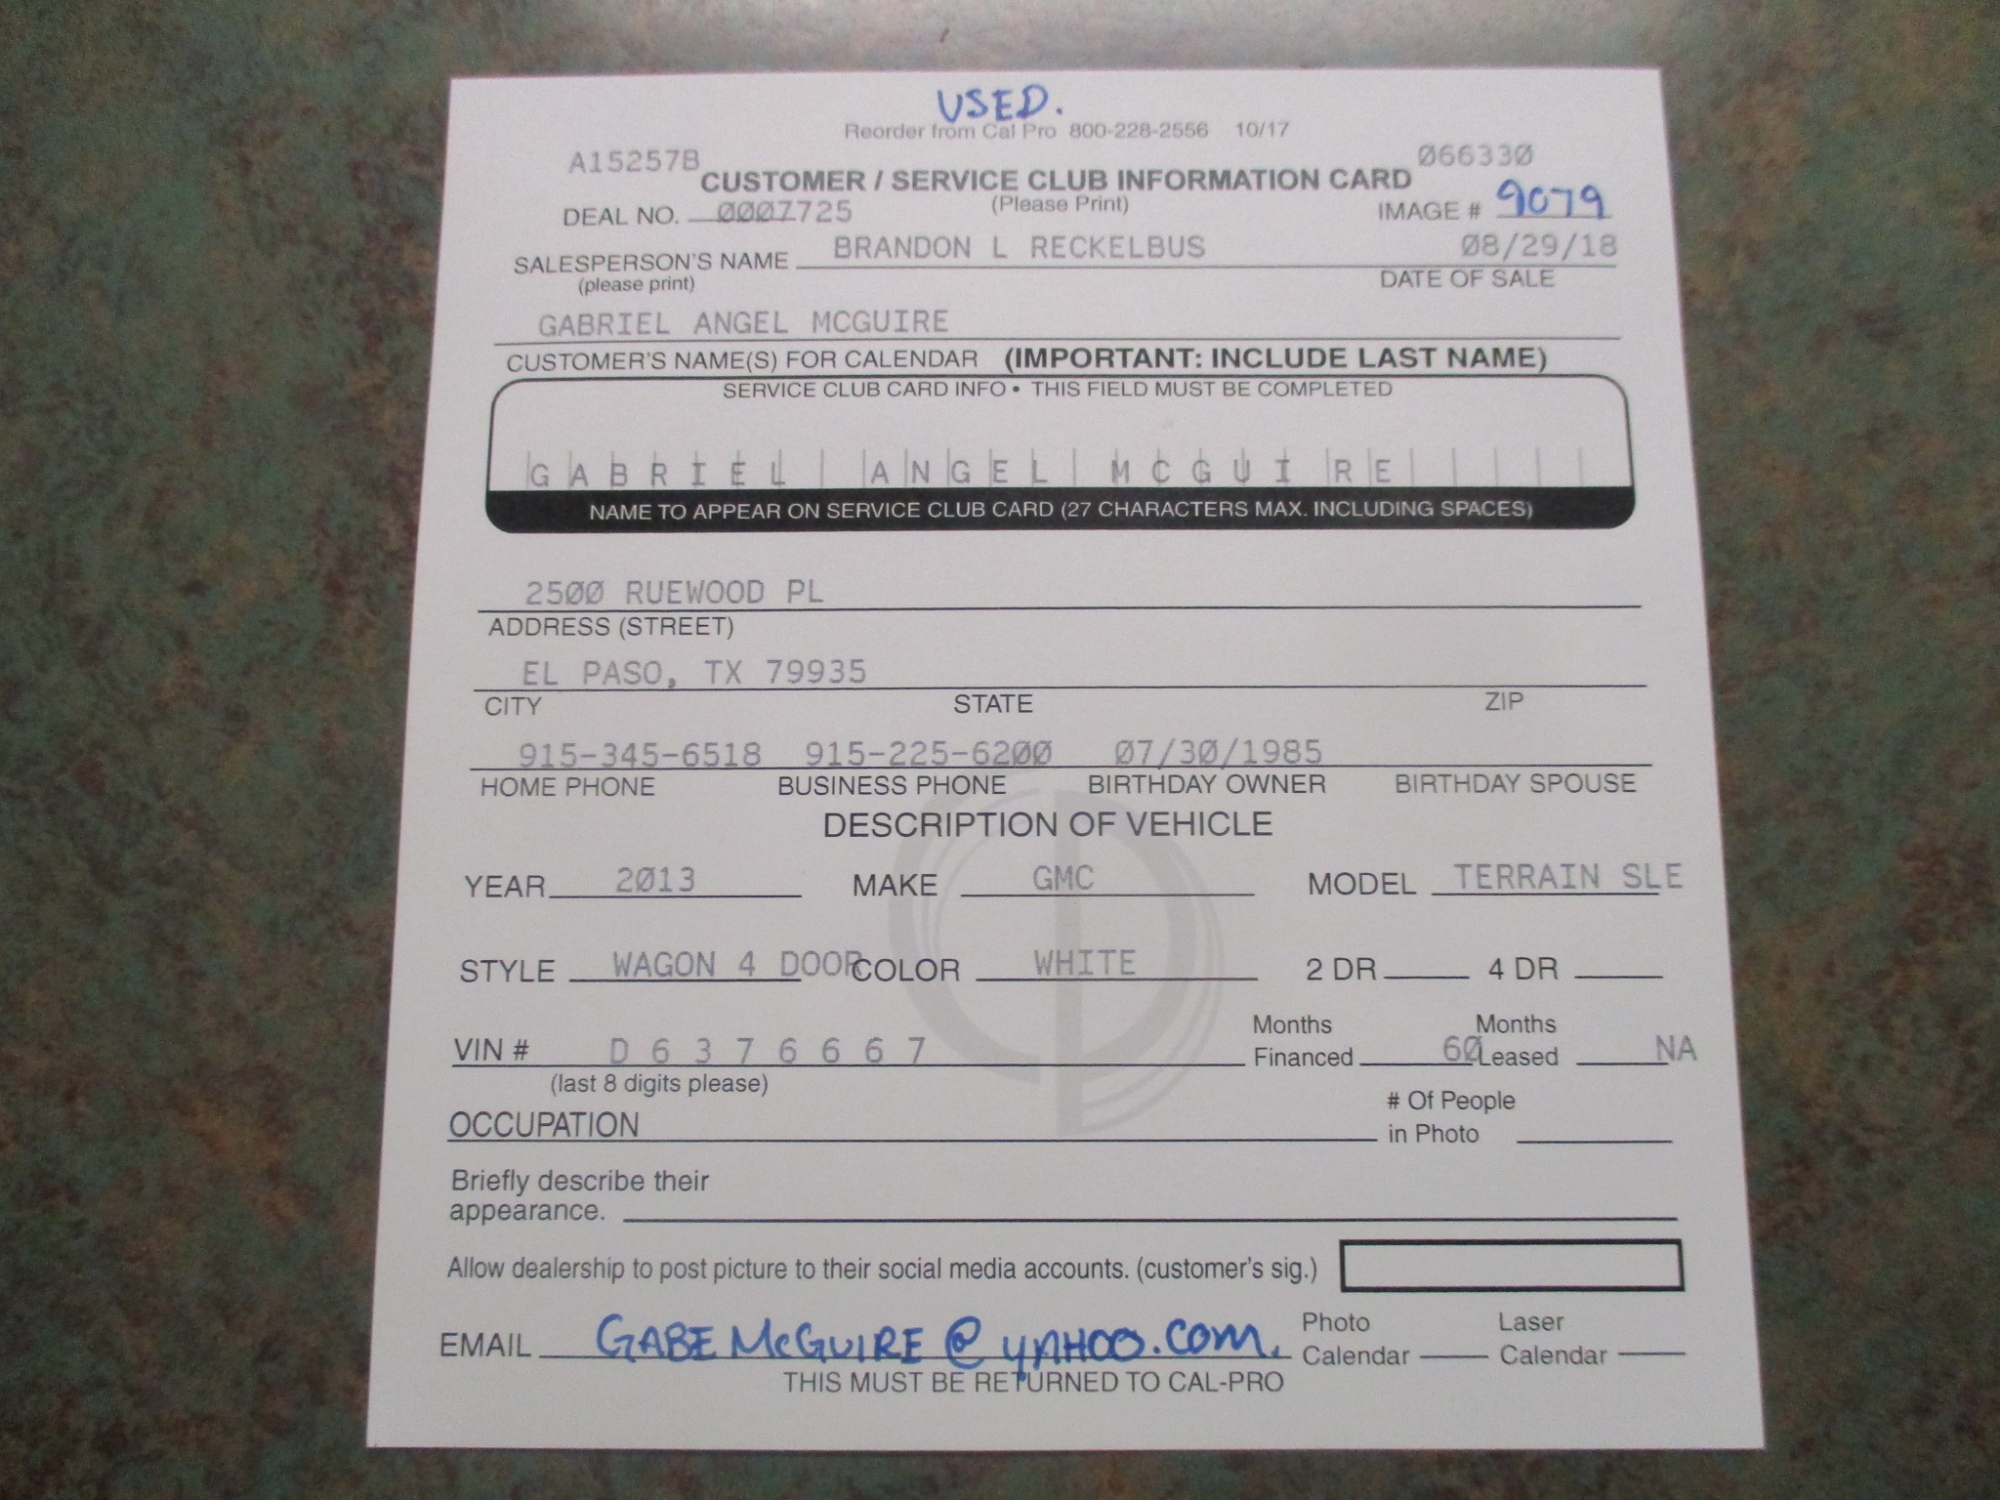 USED.
Reorder from Cal Pro 800-228-2556 10/17
A15257B 066330
CUSTOMER / SERVICE CLUB INFORMATION CARD
DEAL NO. 0007725 (Please Print) IMAGE # 9079
SALESPERSON'S NAME BRANDON L RECKELBUS 08/29/18
(please print) DATE OF SALE
GABRIEL ANGEL MCGUIRE
CUSTOMER'S NAME(S) FOR CALENDAR (IMPORTANT: INCLUDE LAST NAME)
SERVICE CLUB CARD INFO • THIS FIELD MUST BE COMPLETED
GABRIEL ANGEL MCGUIRE
NAME TO APPEAR ON SERVICE CLUB CARD (27 CHARACTERS MAX. INCLUDING SPACES)
2500 RUEWOOD PL
ADDRESS (STREET)
EL PASO, TX 79935
CITY STATE ZIP
915-345-6518 915-225-6200 07/30/1985
HOME PHONE BUSINESS PHONE BIRTHDAY OWNER BIRTHDAY SPOUSE
DESCRIPTION OF VEHICLE
YEAR 2013 MAKE GMC MODEL TERRAIN SLE
STYLE WAGON 4 DOOR COLOR WHITE 2 DR 4 DR
VIN # D6376667 Months Financed 60 Months Leased NA
(last 8 digits please)
OCCUPATION # Of People in Photo
Briefly describe their
appearance.
Allow dealership to post picture to their social media accounts. (customer's sig.)
EMAIL GABEMcGUIRE@yAHOO.COM. Photo Calendar Laser Calendar
THIS MUST BE RETURNED TO CAL-PRO